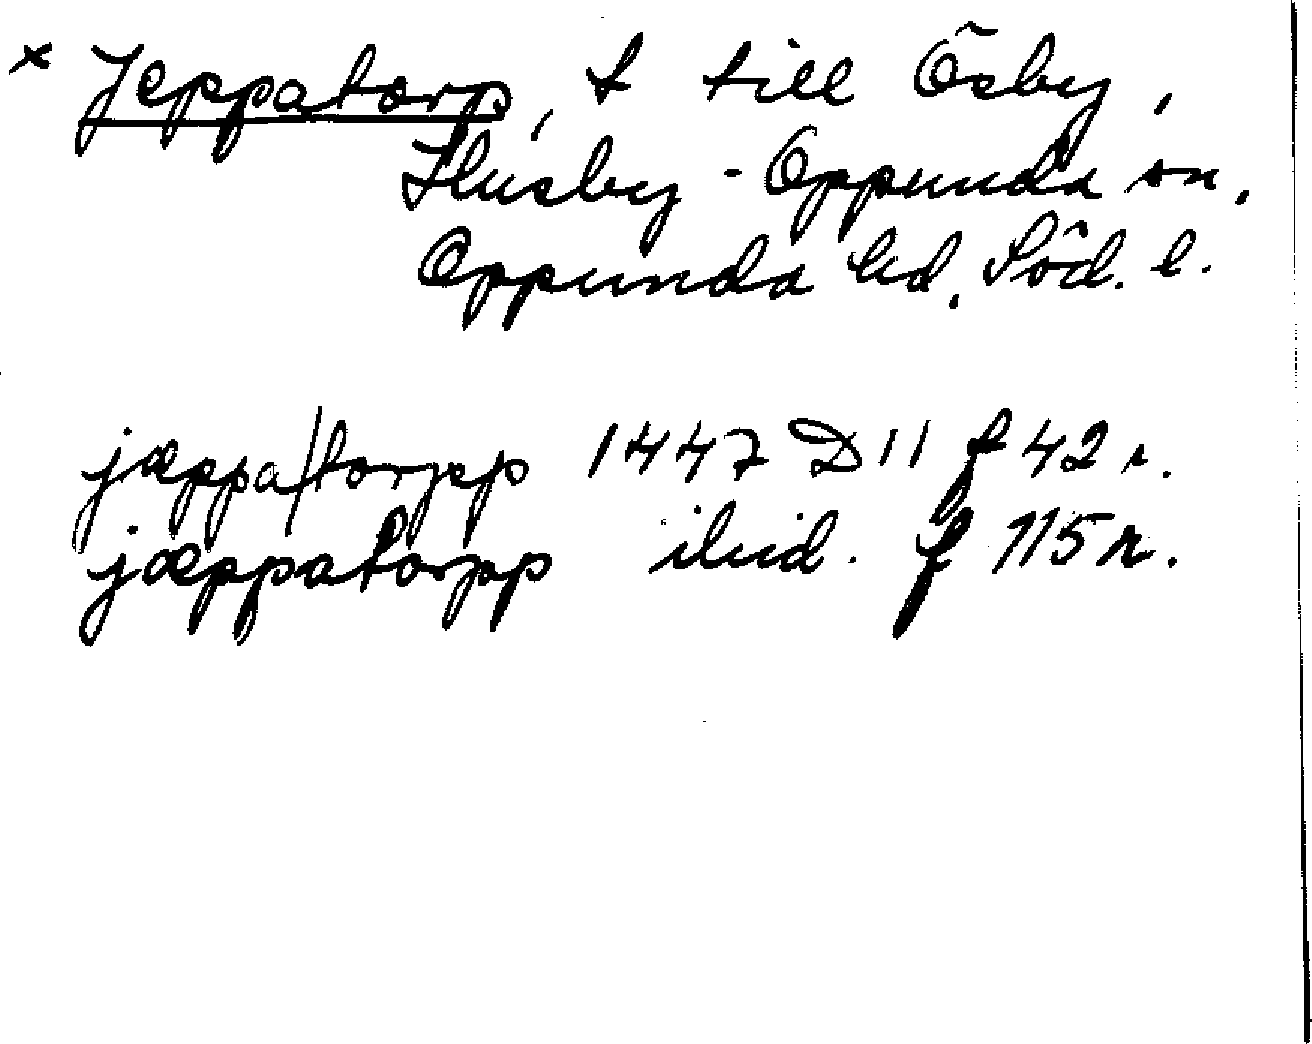 x Jeppatorp, t till Ösby,
Husby-Oppunda sn,
Oppunda hd, Söd. l.
jæppa/torpp 1447 D 11 f 42 r.
jæppatorpp ibid. f 115 r.